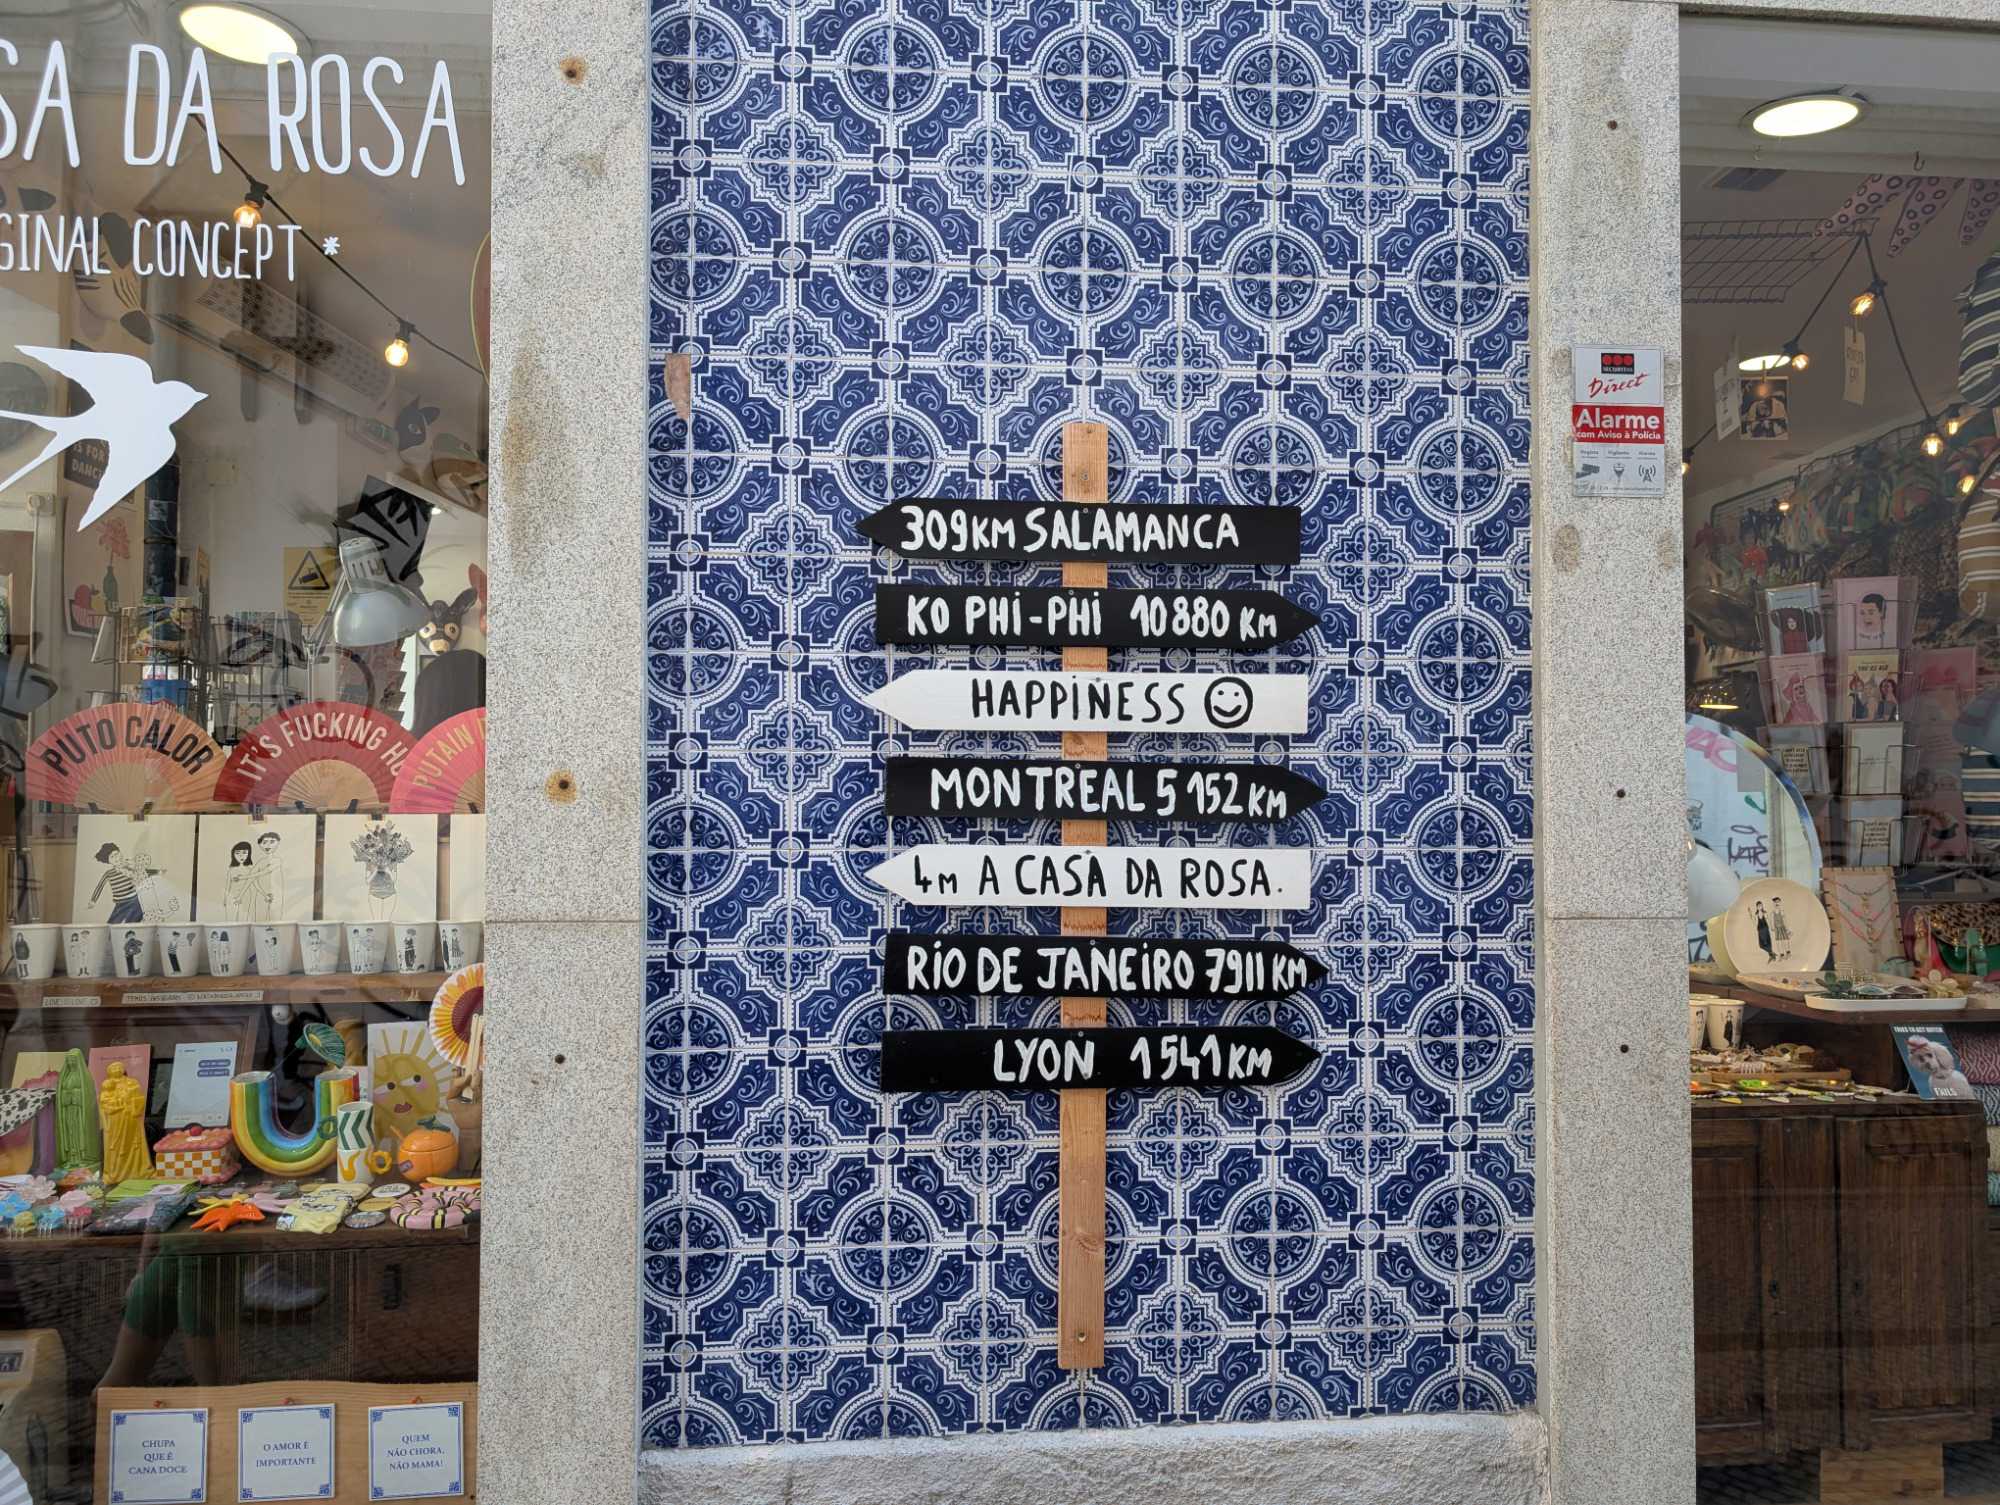 SA DA ROSA
GINAL CONCEPT *
309KM SALAMANCA
KO PHi-PHi 10880 KM
HAPPINESS
MONTREAL 5 152 KM
4M A CASA DA ROSA.
RiO DE JANEiRO 7911 KM
LYON 1541 KM
PUTO CALOR
IT'S FUCKING
PUTAIN
IS FOR
DANC
CHUPA
QUE É
CANA DOCE
O AMOR É
IMPORTANTE
QUEM
NÃO CHORA,
NÃO MAMA!
SECURITAS
Direct
Alarme
com Aviso à Polícia
FAILS